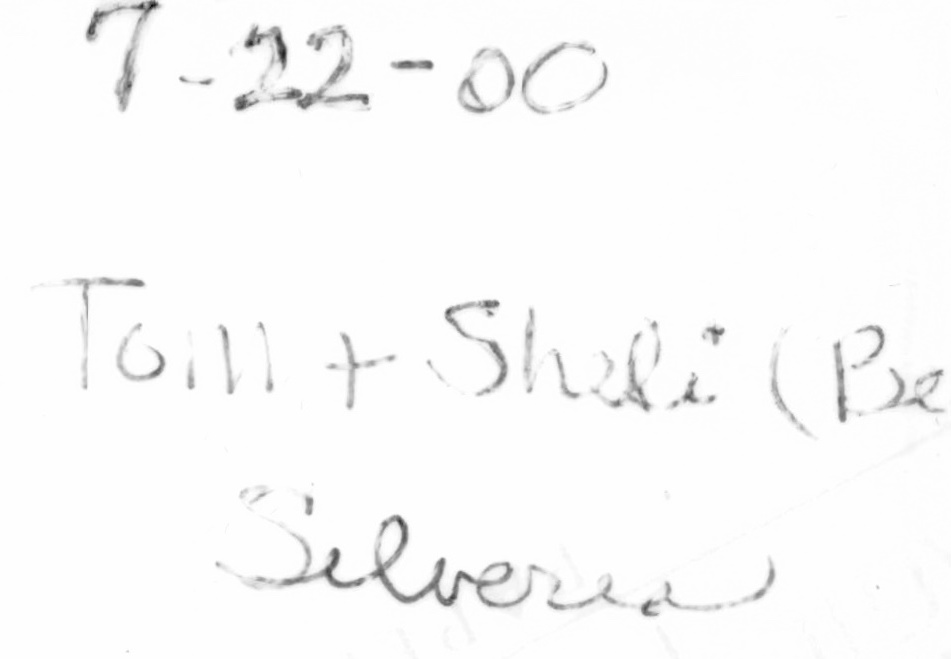 7-22-00
Tom + Sheli (Be
Silveria